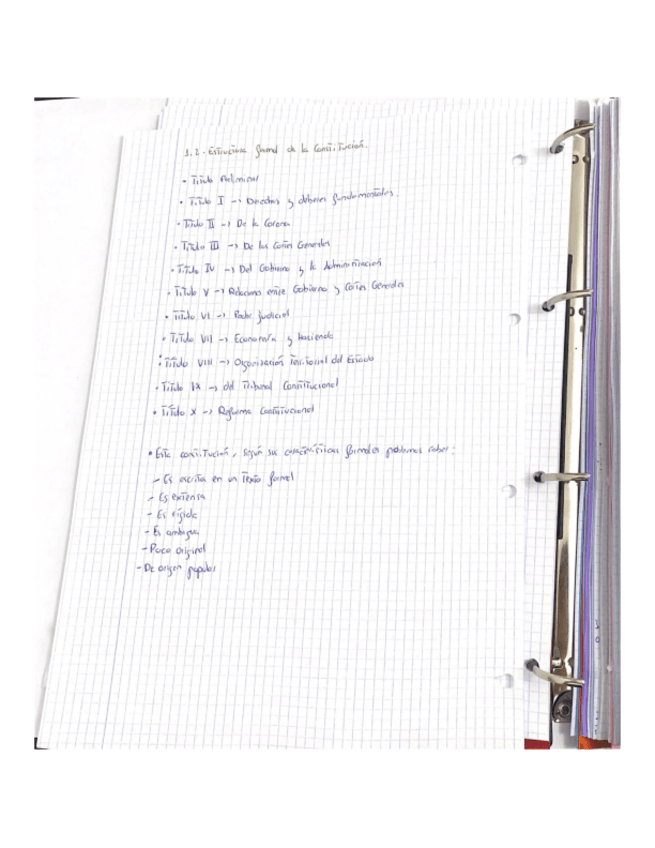 3.2.- Estructura formal de la Constitución.
• Título Preliminar
• Título I -> Derechos y deberes fundamentales.
• Título II -> De la Corona
• Título III -> De las Cortes Generales
• Título IV -> Del Gobierno y la Administración
• Título V -> Relaciones entre Gobierno y Cortes Generales
• Título VI -> Poder judicial
• Título VII -> Economía y hacienda
• Título VIII -> Organización Territorial del Estado
• Título IX -> del Tribunal Constitucional
• Título X -> Reforma Constitucional
• Esta constitución, según sus características formales podemos saber:
- Es escrita en un Texto formal
- Es extensa
- Es rígida
- Es ambigua
- Poco original
- De origen popular